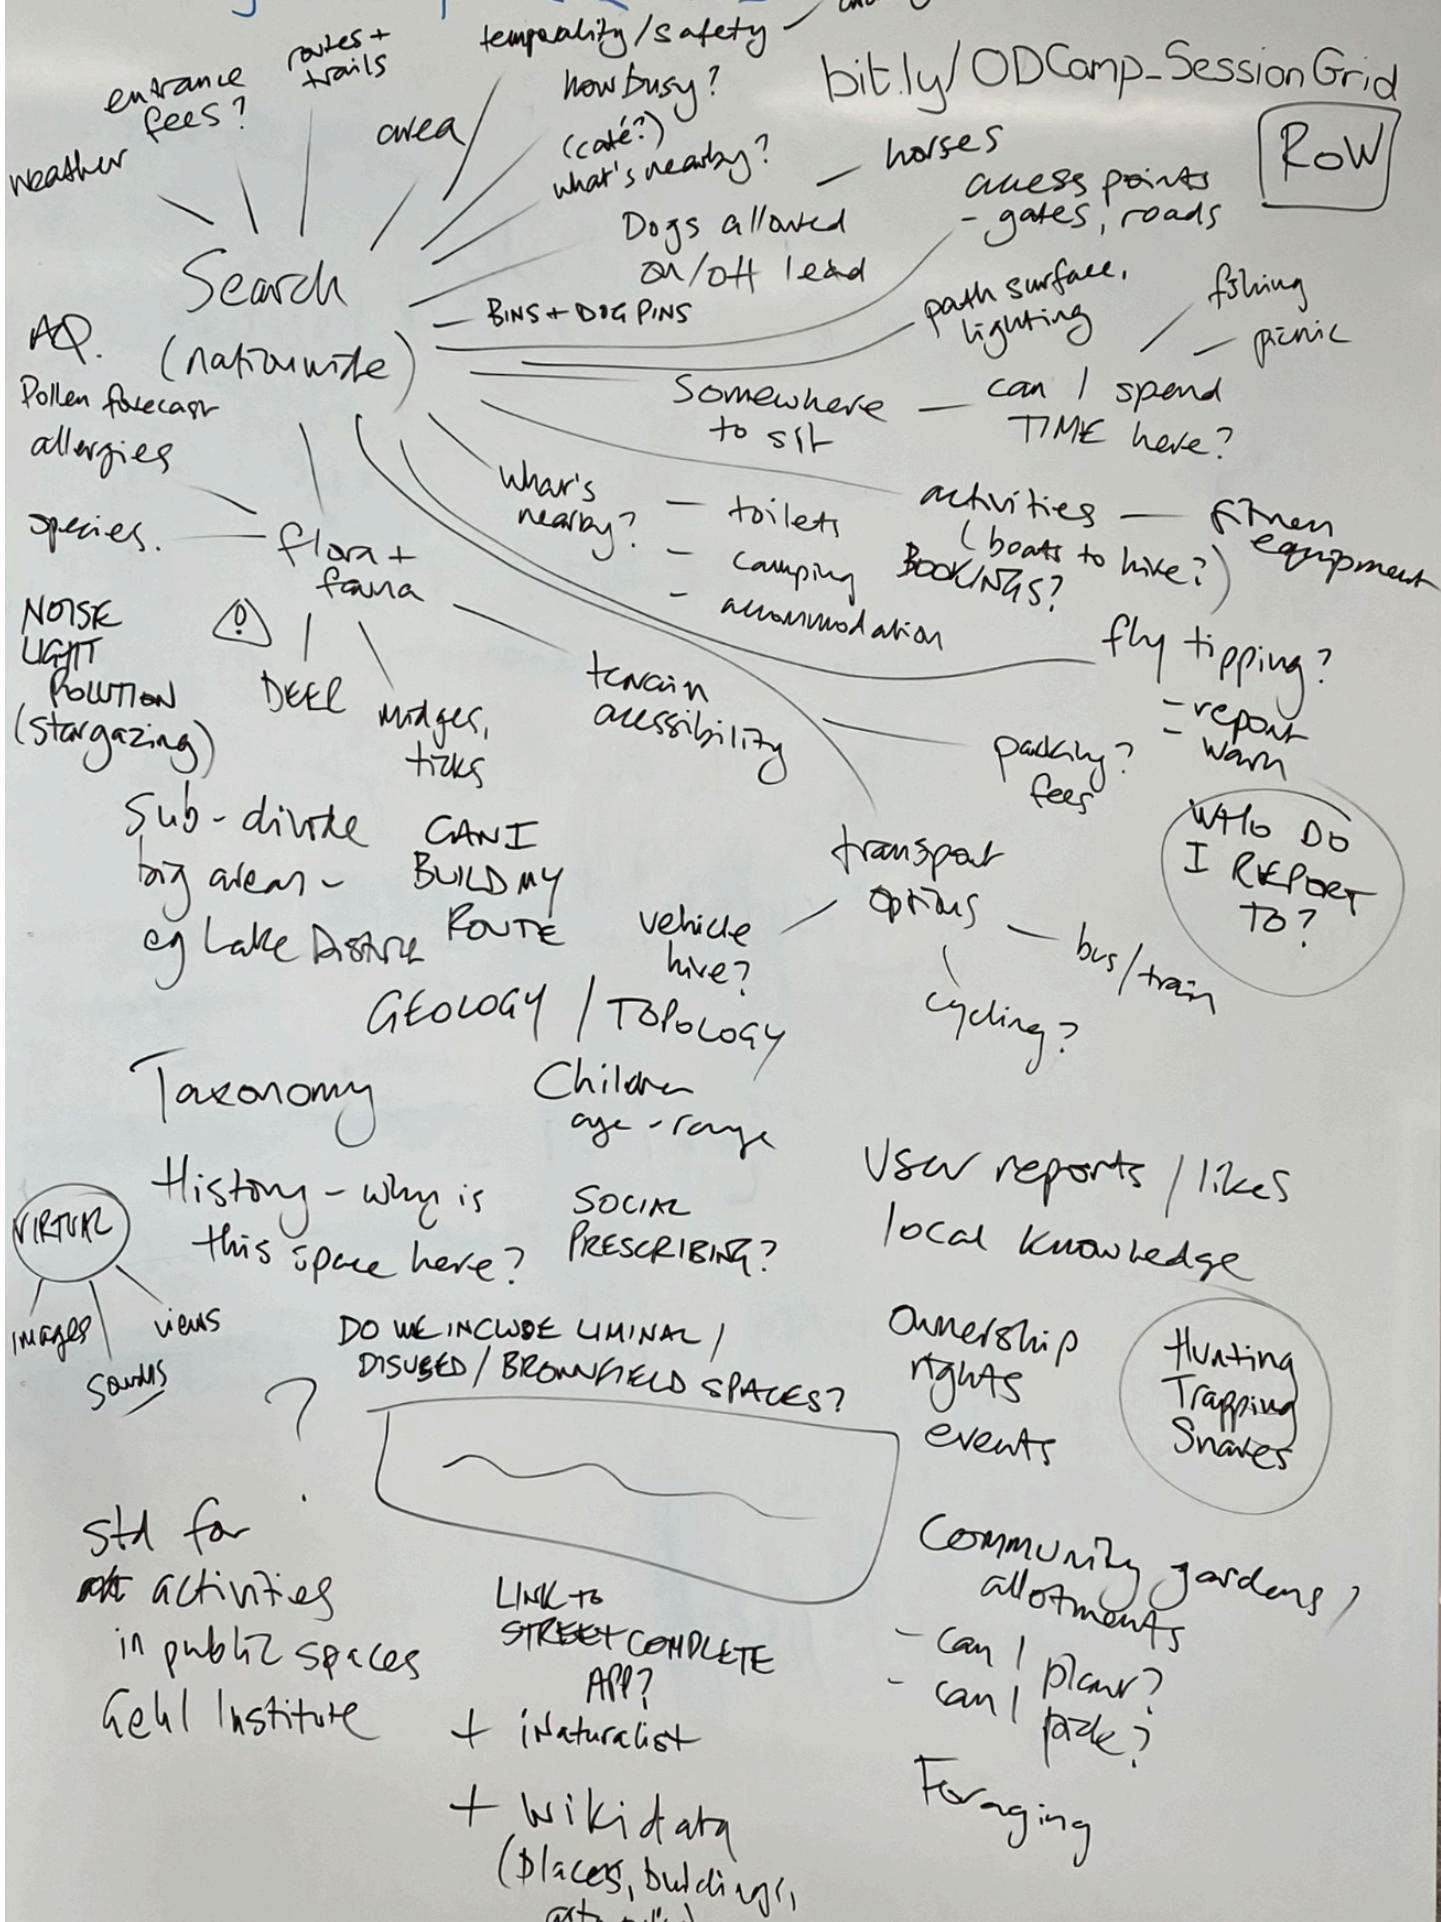 temporality/safety
routes +
trails
entrance
fees?
weather
area
how busy?
(café?)
what's nearby?
bit.ly/ODCamp_SessionGrid
RoW
horses
access points
- gates, roads
Dogs allowed
on/off lead
Search
(nationwide)
BINS + DOG PINS
path surface,
lighting
fishing
picnic
AQ.
Pollen forecast
allergies
Somewhere
to sit
can I spend
TIME here?
species.
flora +
fauna
what's
nearby?
- toilets
- camping
- accommodation
activities
(boats to hire?)
BOOKINGS?
fitness
equipment
NOISE
LIGHT
POLUTION
(stargazing)
DEER
midges,
ticks
terrain
acessibility
fly tipping?
- report
- warn
parking?
fees
WHO DO
I REPORT
TO?
Sub-divide
big areas -
eg Lake District
CAN I
BUILD MY
ROUTE
transport
options
vehicle
hire?
cycling?
bus/train
GEOLOGY / TOPOLOGY
Taxonomy
Children
age-range
History - why is
this space here?
SOCIAL
PRESCRIBING?
User reports / likes
local knowledge
VIRTUAL
images
sounds
views
DO WE INCLUDE LIMINAL /
DISUSED / BROWNFIELD SPACES?
?
Ownership
rights
events
Hunting
Trapping
Snares
std for
activities
in public spaces
Gehl Institute
LINK TO
STREETCOMPLETE
APP?
+ iNaturalist
+ Wikidata
(places, buildings,
Community gardens,
allotments
- can I plant?
- can I pick?
Foraging